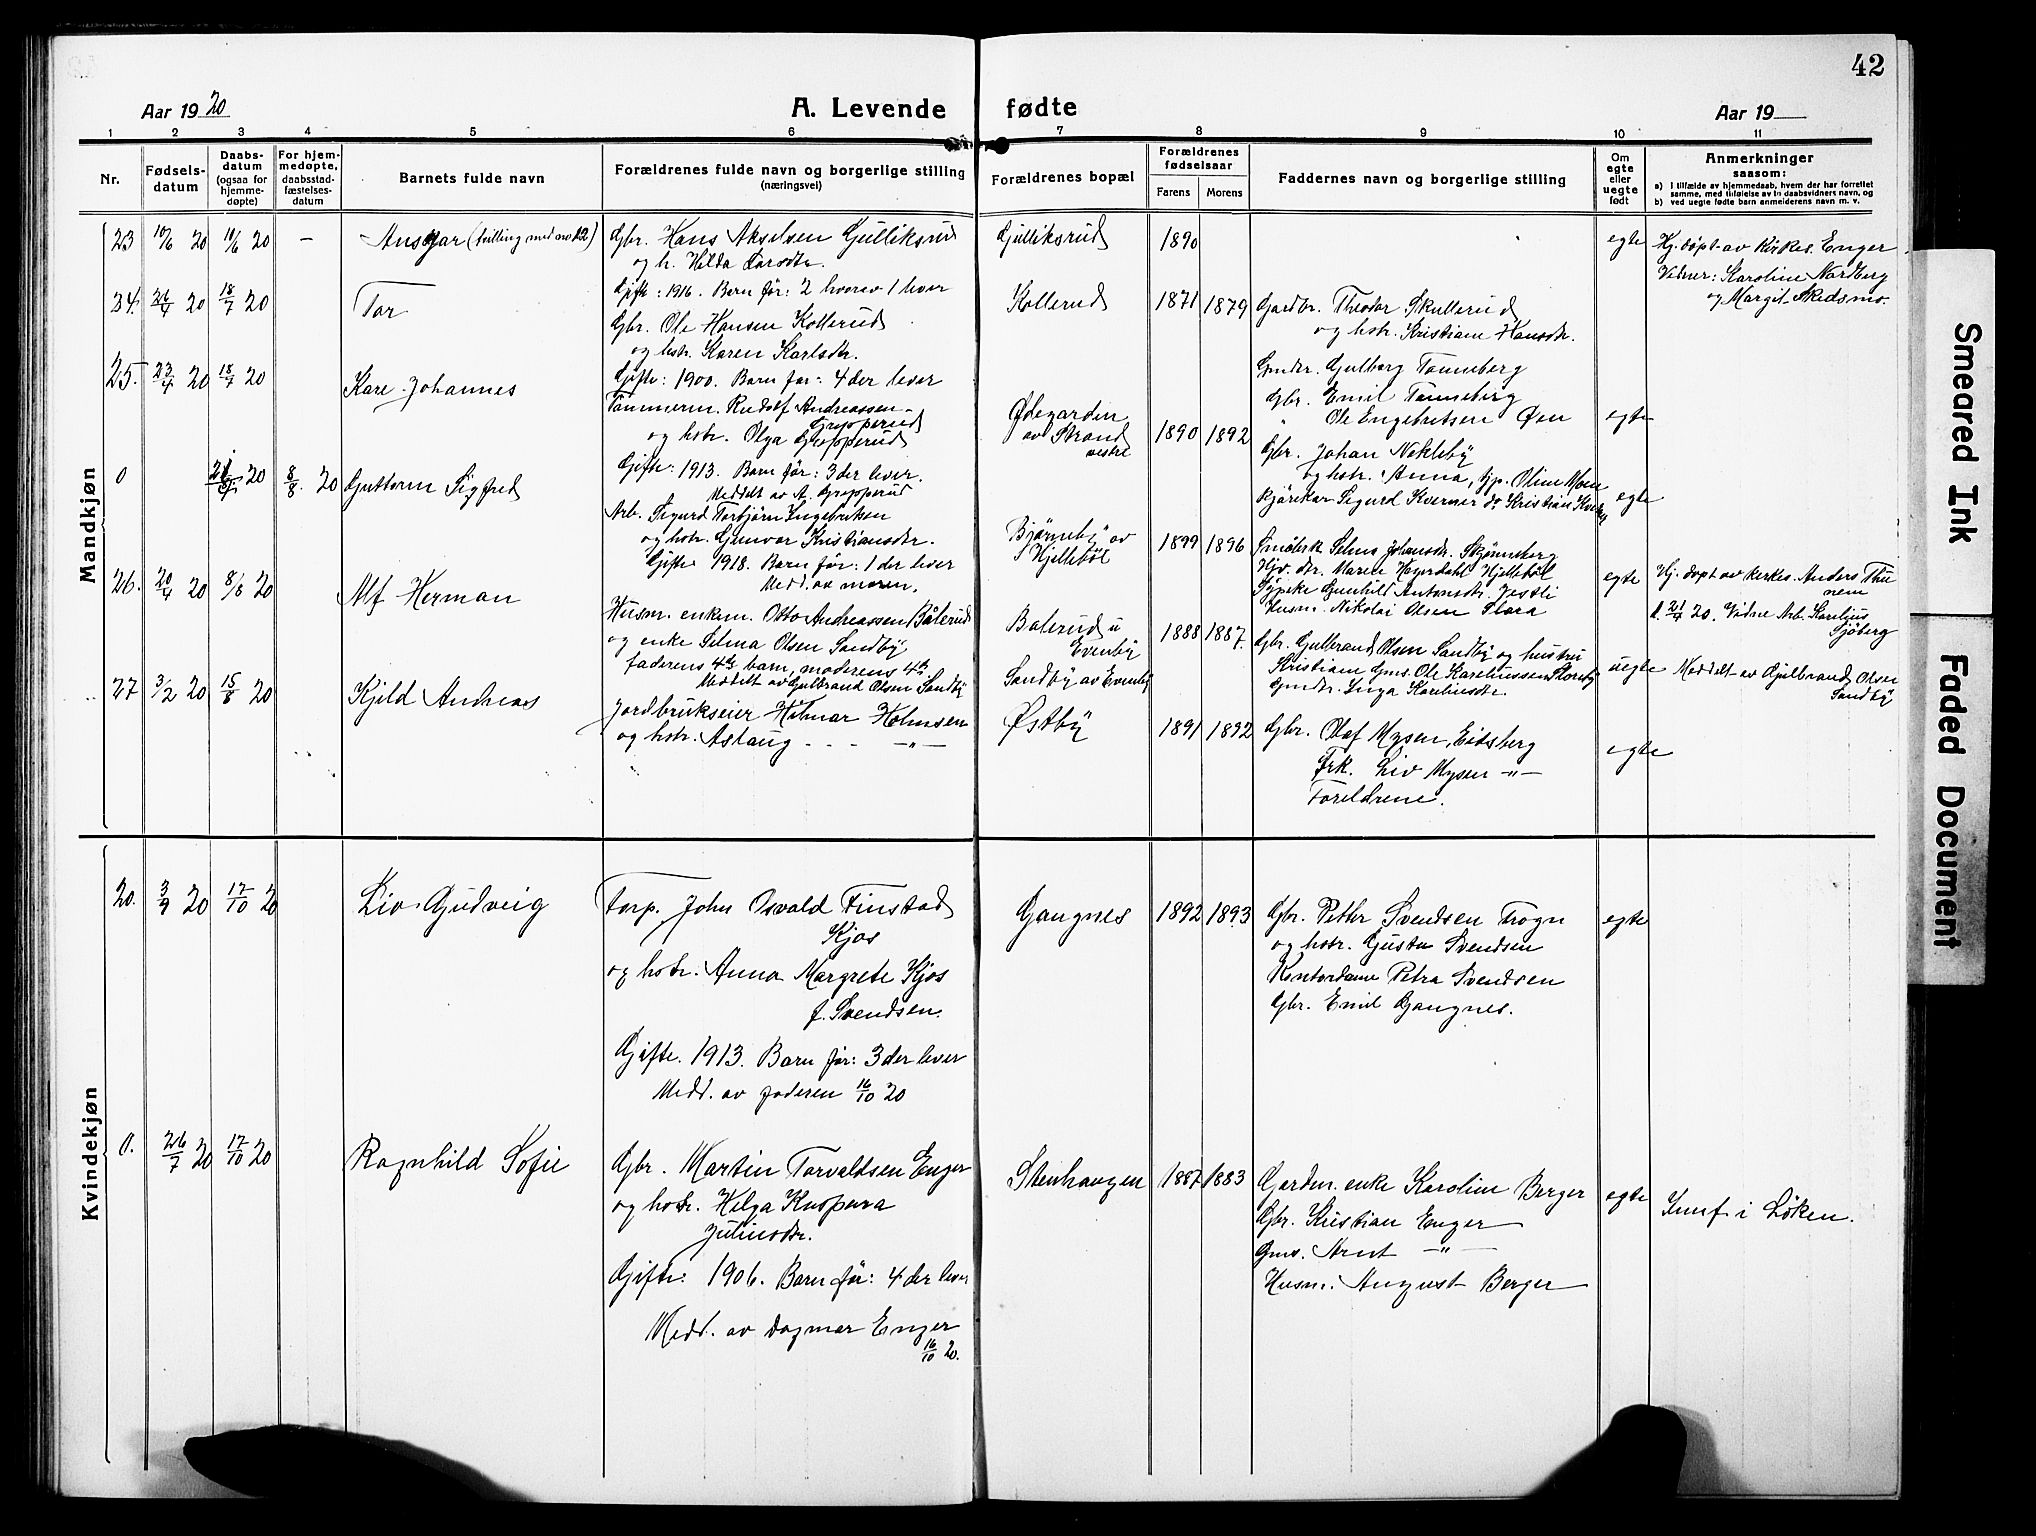 42
Aar 1920
A. Levende fødte
Aar 19
1 2 3 4 5 6 7 8 9 10 11
Nr.
Fødsels-datum
Daabs-datum (ogsaa for hjemme-døpte)
For hjem-medøpte, daabsstad-fæstelses-datum
Barnets fulde navn
Forældrenes fulde navn og borgerlige stilling (næringsvei)
Forældrenes bopæl
Forældrenes fødselsaar
Farens
Morens
Faddernes navn og borgerlige stilling
Om egte eller uegte født
Anmerkninger saasom:
a) I tilfælde av hjemmedaab, hvem der har forrettet samme, med tilføielse av to daabsvidners navn, og
b) ved uegte fødte barn anmelderens navn m. v.
Mandkjøn
23 10/6 20 10/6 20 – Ansgar (tvilling med no 22)
Gbr. Hans Akselsen Gulliksrud
og h. Hilda Larsdtr.
Gifte: 1916. Barn før: 2 hvorav 1 lever
Gulliksrud 1890
egte
Hj. døpt av Kirkes. Enger
Vidner: Karoline Nordberg
og Margit Skedsmo.
24. 26/4 20 18/7 20 Tor
Gbr. Ole Hansen Kollerud
og hstr. Karen Karlsdtr.
Gifte: 1900. Barn før: 4 der lever
Kollerud 1871 1879
Gardbr. Theodor Skullerud
og hstr. Kristiane Hansdtr.
25. 23/4 20 18/7 20 Kare Johannes
Tømmerm. Rudolf Andreassen
Gropperud
og hstr. Olga Gropperud
Gifte: 1913. Barn før: 3 der lever.
Meddelt av A. Gropperud
Ødegarden
av Strand
vestre
1890 1892
Gmdtr. Gulborg Tanneberg
Gbr. Emil Tanneberg
" Ole Engebretsen Øen
egte
0 20 8/8 20 Guttorm Sigfred
Arb. Sigurd Torbjørn Ingebriktsen
og hstr. Gunvor Kristiansdtr.
Gifte 1918. Barn før: 1 der lever
Medd. av moren.
Bjørneby av
Hjellebøl
1899 1896
Gbr. Johan Nekleby
og hstr. Anna, Gp. Oline Moen
Kjørekar Sigurd Kverner do Kristian
egte
26. 20/4 20 8/8 20 Alf Herman
Husm. enkem. Otto Andreassen Bålerud
og enke Selma Olsen Sandby
faderens 4de barn, moderens 4de
Meddelt av Gulbrand Olsen Sandby
Balerud u
Evenby
Sandby av Evenby
1888 1887.
Hjv. dtr. Maren Hagerdahl Hjellebøl
Sypike Gunhild Antonsdtr. Vestli
Husm. Nikolai Olsen Flora
egte
uegte
Hj. døpt av kirkes. Anders Thu
nem
d. 21/4 20. Vidne Arb. Karelius
Sjøberg
27 3/2 20 15/8 20 Kjeld Andreas
Jordbrukseier Hilmar Holmsen
og hstr. Aslaug - - - -"-
Østby 1891 1892
Gbr. Gulbrand Olsen Sandby og hustru
Kristiane Gms. Ole Kareliussen
Gmdtr. Inga Kareliusdtr.
Meddelt av Gulbrand Olsen
Sandby
Gbr. Olaf Mysen, Eidsberg
Frk. Liv Mysen -"-
Foreldrene.
egte
Kvindekjøn
20. 3/9 20 17/10 20 Liv Gudveig
Torp. John Osvald Finstad
Kjos
og hstr. Anna Margrete Kjos
f. Svendsen.
Gifte. 1913. Barn før: 3 der lever
Medd. av faderen 16/10 20
Gangnes 1892 1893
Gbr. Petter Svendsen Trogn
og hstr. Gusta Svendsen
Kontordame Petra Svendsen
Gbr. Emil Gangnes.
egte
0. 26/7 20 17/10 20 Ragnhild Sofie
Gbr. Martin Torvaldsen Enger
og hstr. Helga Kaspara
Juliusdtr.
Gifte: 1906. Barn før: 4 der lever
Medd. av Dagmar Enger
16/10 20.
Stenhaugen 1887 1883
Garden. enke Karoline Berger
Gbr. Kristian Enger
Gms. Arnt -"-
Husm. August Berger
egte
Innf i Løken.
Smeared Ink
Faded Document